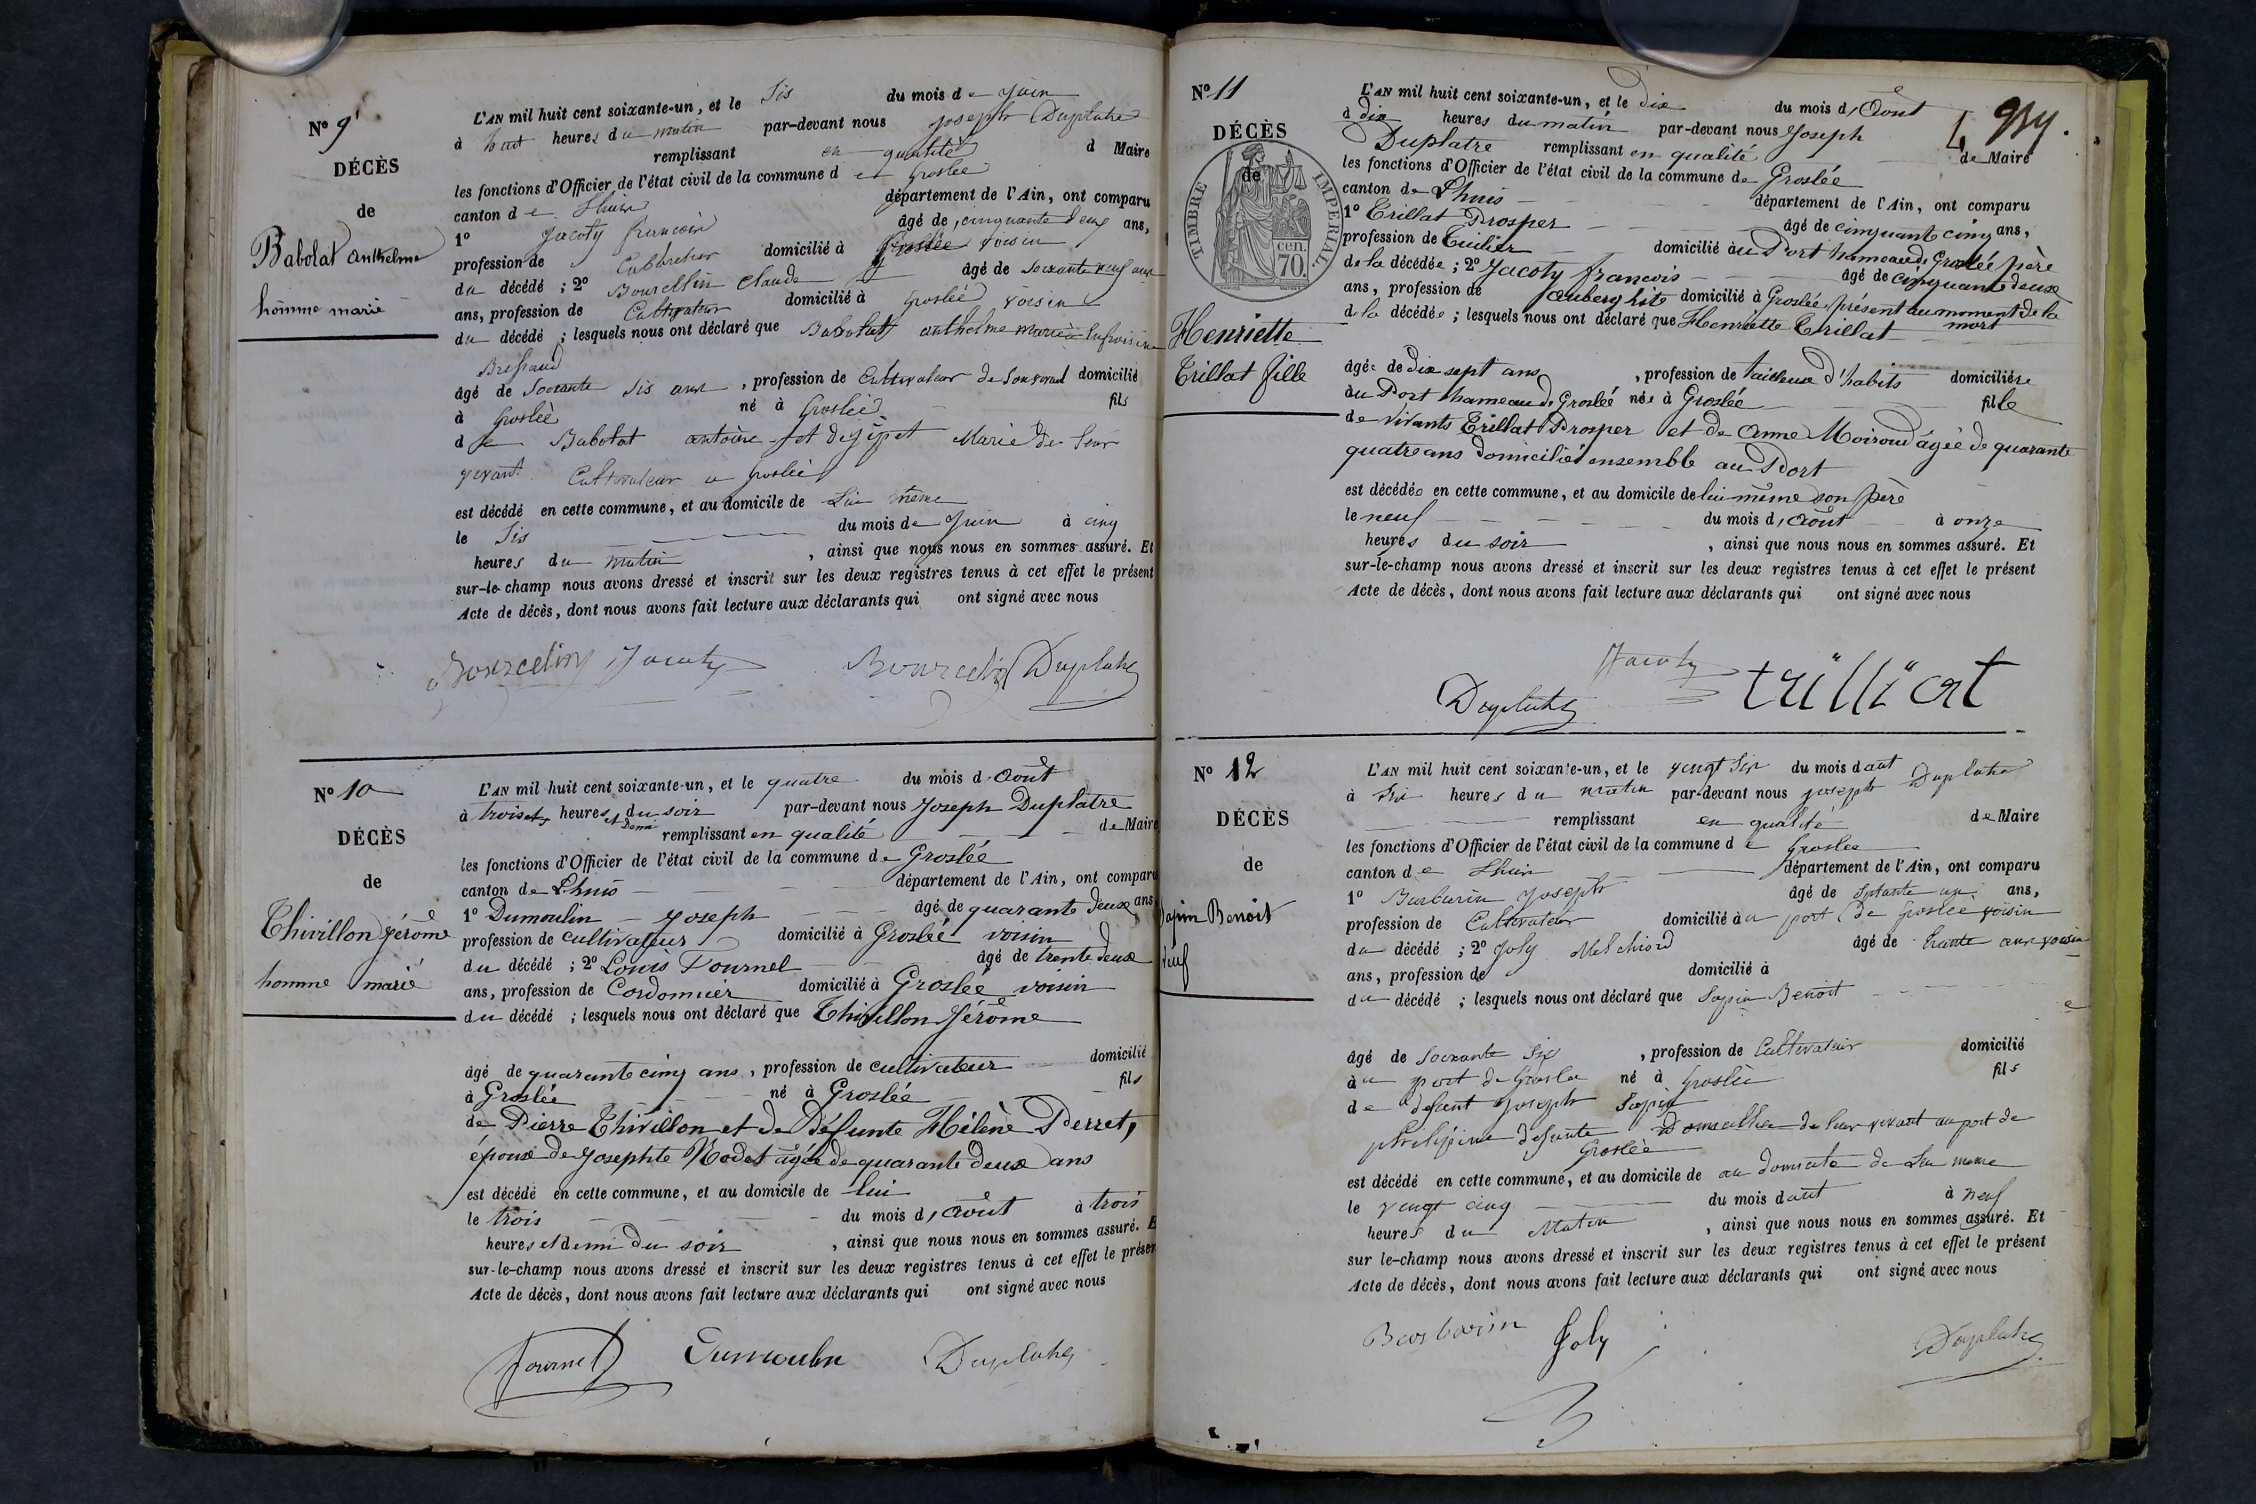 N° 9
DÉCÈS
de
Babolat Anthelme
homme marié
L'AN mil huit cent soixante-un, et le Sis du mois de Juin
à huit heures du matin par-devant nous Joseph Duplatre
remplissant en qualité d Maire
les fonctions d'Officier de l'état civil de la commune de Groslée
canton de Lhuis département de l'Ain, ont comparu
1° Jacoty françois âgé de cinquante deux ans,
profession de Cultivateur domicilié à Groslée voisin
du décédé ; 2° Bourcellin Claude âgé de soixante neuf ans
ans, profession de Cultivateur domicilié à Groslée voisin
du décédé ; lesquels nous ont déclaré que Babolat anthelme marié à
âgé de Soixante Sis ans, profession de Cultivateur de Son vivant domicilié
à Groslée né à Groslée fils
de Babolat antoine et de Marie de leur
vivant Cultivateur a Groslée
est décédé en cette commune, et au domicile de Lui même
le Sis du mois de Juin à cinq
heures du matin, ainsi que nous nous en sommes assuré. Et
sur-le-champ nous avons dressé et inscrit sur les deux registres tenus à cet effet le présent
Acte de décès, dont nous avons fait lecture aux déclarants qui ont signé avec nous
Bourcelin Jacoty Bourcelin Duplatre
N° 10
DÉCÈS
de
Thivillon Jérôme
homme marié
L'AN mil huit cent soixante-un, et le quatre du mois d'Août
à trois heures et demi du soir par-devant nous Joseph Duplatre
remplissant en qualité de Maire
les fonctions d'Officier de l'état civil de la commune de Groslée
canton de Lhuis département de l'Ain, ont comparu
1° Dumoulin Joseph âgé de quarante deux ans
profession de cultivateur domicilié à Groslée voisin
du décédé ; 2° Louis Fournel âgé de trente deux
ans, profession de Cordonnier domicilié à Groslée voisin
du décédé ; lesquels nous ont déclaré que Thivillon Jérôme
âgé de quarante cinq ans, profession de cultivateur domicilié
à Groslée né à Groslée fils
de Pierre Thivillon et de Défunte Hélène Perret,
époux de Josephte Nodet âgée de quarante deux ans
est décédé en cette commune, et au domicile de lui
le trois du mois d'Août à trois
heures et demi du soir, ainsi que nous nous en sommes assuré. E
sur-le-champ nous avons dressé et inscrit sur les deux registres tenus à cet effet le présen
Acte de décès, dont nous avons fait lecture aux déclarants qui ont signé avec nous
fournel Dumoulin Duplatre
N° 11
DÉCÈS
de
TIMBRE IMPERIAL
cen.
70.
Henriette
Trillat fille
939.
L'AN mil huit cent soixante-un, et le Dix du mois d'Août
à dix heures du matin par-devant nous Joseph
Duplatre remplissant en qualité de Maire
les fonctions d'Officier de l'état civil de la commune de Groslée
canton de Lhuis département de l'Ain, ont comparu
1° Trillat Prosper âgé de cinquant cinq ans,
profession de Tuilier domicilié au Port hameau de Groslée père
de la décédée ; 2° Jacoty françois âgé de cinquante deux
ans, profession de aubergiste domicilié à Groslée présent au moment de la
mort
d la décédée ; lesquels nous ont déclaré que Henriette Trillat
âgée de dix sept ans, profession de tailleuse d'habits domiciliée
au Port hameau de Groslée née à Groslée fille
de vivants Trillat Prosper et de Anne Moiroud âgée de quarante
quatre ans domiciliés ensemble au Port
est décédée en cette commune, et au domicile de lui même son père
le neuf du mois d'Août à onze
heures du soir, ainsi que nous nous en sommes assuré. Et
sur-le-champ nous avons dressé et inscrit sur les deux registres tenus à cet effet le présent
Acte de décès, dont nous avons fait lecture aux déclarants qui ont signé avec nous
Jacoty
Duplatre trilliat
N° 12
DÉCÈS
de
Sapin Benoit
veuf
L'AN mil huit cent soixante-un, et le vingt Six du mois d aut
à heures du matin par-devant nous Joseph Duplatre
remplissant en qualité de Maire
les fonctions d'Officier de l'état civil de la commune de Groslée
canton de Lhuis département de l'Ain, ont comparu
1° Barbarin Joseph âgé de Septante un ans,
profession de Cultivateur domicilié au port de Groslée voisin
du décédé ; 2° Joly Melchiord âgé de trante ans voisin
ans, profession de domicilié à
du décédé ; lesquels nous ont déclaré que Sapin Benoit
âgé de Soixante Six, profession de Cultivateur domicilié
au port de Groslée né à Groslée fils
de defunt Joseph Sapin
philipine defunte Domicillie de leur vivant au port de
Groslée
est décédé en cette commune, et au domicile de au domicile de Lui meme
le vingt cinq du mois d aut à neuf
heures du Matin, ainsi que nous nous en sommes assuré. Et
sur le-champ nous avons dressé et inscrit sur les deux registres tenus à cet effet le présent
Acte de décès, dont nous avons fait lecture aux déclarants qui ont signé avec nous
Barbarin Joly Duplatre